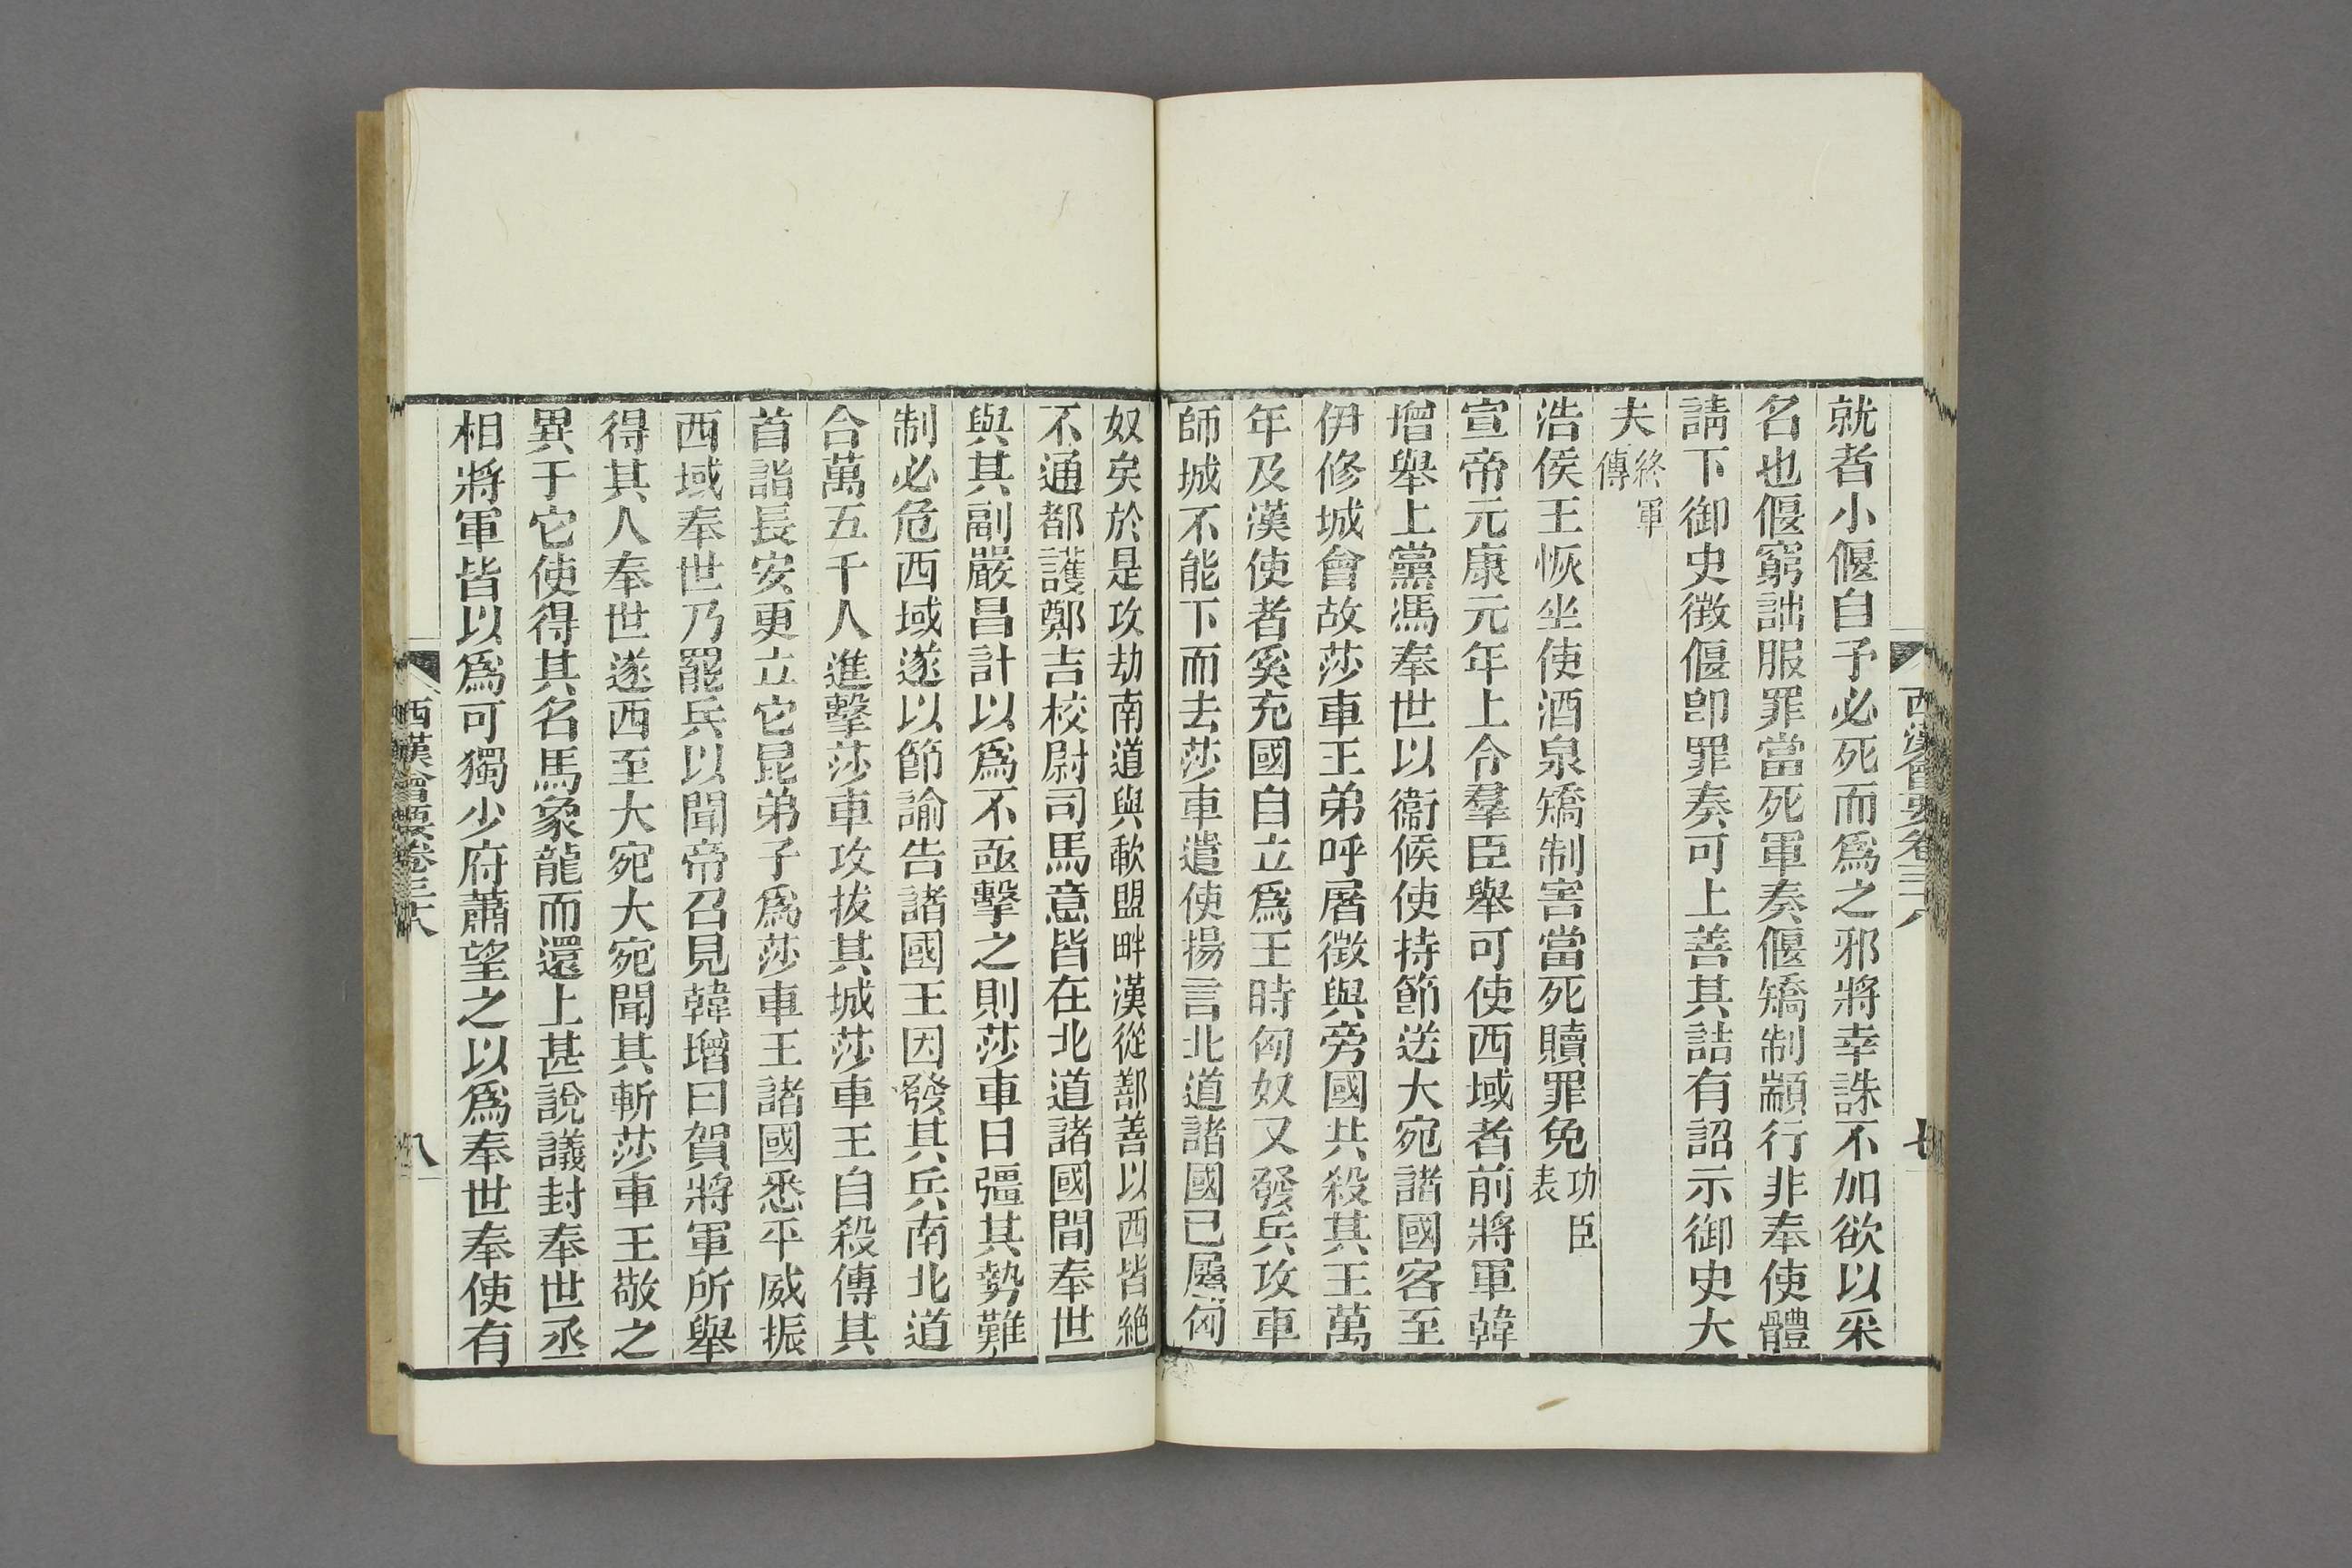 西漢會要卷三十八
七
就者小偃自予必死而爲之邪將幸誅不加欲以釆
名也偃窮詘服罪當死軍奏偃矯制顓行非奉使體
請下御史徵偃卽罪奏可上善其詰有詔示御史大
夫終軍傳
浩侯王恢坐使酒泉矯制害當死贖罪免功臣表
宣帝元康元年上令羣臣舉可使西域者前將軍韓
增舉上黨馮奉世以衞候使持節送大宛諸國客至
伊修城會故莎車王弟呼屠徵與旁國共殺其王萬
年及漢使者奚充國自立爲王時匈奴又發兵攻車
師城不能下而去莎車遣使揚言北道諸國已屬匈
奴矣於是攻劫南道與歃盟畔漢從鄯善以西皆絶
不通都護鄭吉校尉司馬意皆在北道諸國間奉世
與其副嚴昌計以爲不亟擊之則莎車日彊其勢難
制必危西域遂以節諭告諸國王因發其兵南北道
合萬五千人進擊莎車攻拔其城莎車王自殺傳其
首詣長安更立它昆弟子爲莎車王諸國悉平威振
西域奉世乃罷兵以聞帝召見韓增曰賀將軍所舉
得其人奉世遂西至大宛大宛聞其斬莎車王敬之
異于它使得其名馬象龍而還上甚說議封奉世丞
相將軍皆以爲可獨少府蕭望之以爲奉世奉使有
西漢會要卷三十八
八